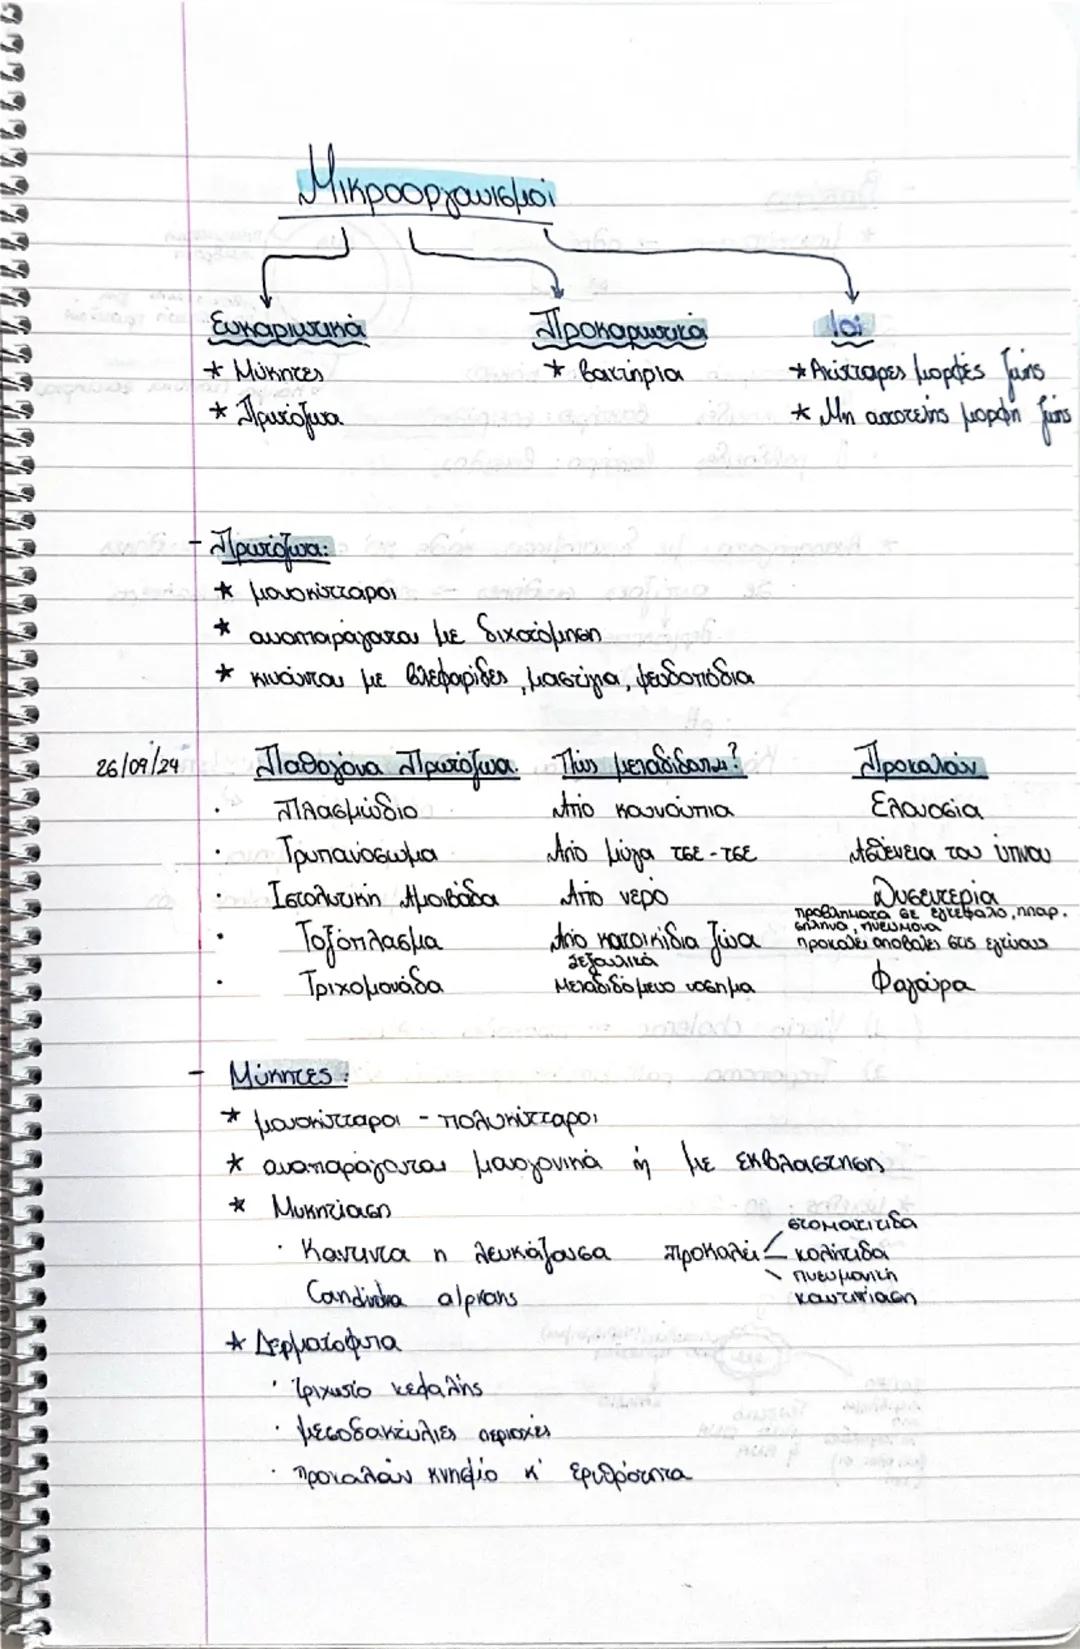 Μικροοργανισμοί
Ευκαριωτικά Προκαρυωτικά Ιοί
* Μύκητες * Βακτήρια * Ακύτταρες μορφές ζωής
* Πρωτόζωα * Μη αυτοτελής μορφή ζωής
- Πρωτόζωα:
* μονοκύτταροι
* αναπαράγονται με διχοτόμηση
* κινούνται με βλεφαρίδες, μαστίγια, ψευδοπόδια
26/09/24 Παθογόνα Πρωτόζωα. Πώς μεταδίδονται? Προκαλούν
· Πλασμώδιο Από κουνούπια Ελονοσία
· Τρυπανόσωμα Από μύγα τσε-τσε Ασθένεια του ύπνου
· Ιστολυτική Αμοιβάδα Από νερό Δυσεντερία
· Τοξόπλασμα Από κατοικίδια ζώα προβλήματα σε εγκέφαλο, ηπαρ. σπλήνα, πνεύμονα
προκαλεί αποβολές στις εγκύους
· Τριχομονάδα Σεξουαλικά μεταδιδόμενο νόσημα Φαγούρα
- Μύκητες:
* μονοκύτταροι - πολυκύτταροι
* αναπαράγονται μονογονικά ή με εκβλάστηση
* Μυκητίαση
· Καντιντα η λευκάζουσα προκαλεί στοματίτιδα
κολπίτιδα
πνευμονική
καντιτίαση
* Δερματόφυτα
· τριχωτό κεφαλής
· μεσοδακτύλιες περιοχές
· προκαλούν κνησμό κ' ερυθρότητα